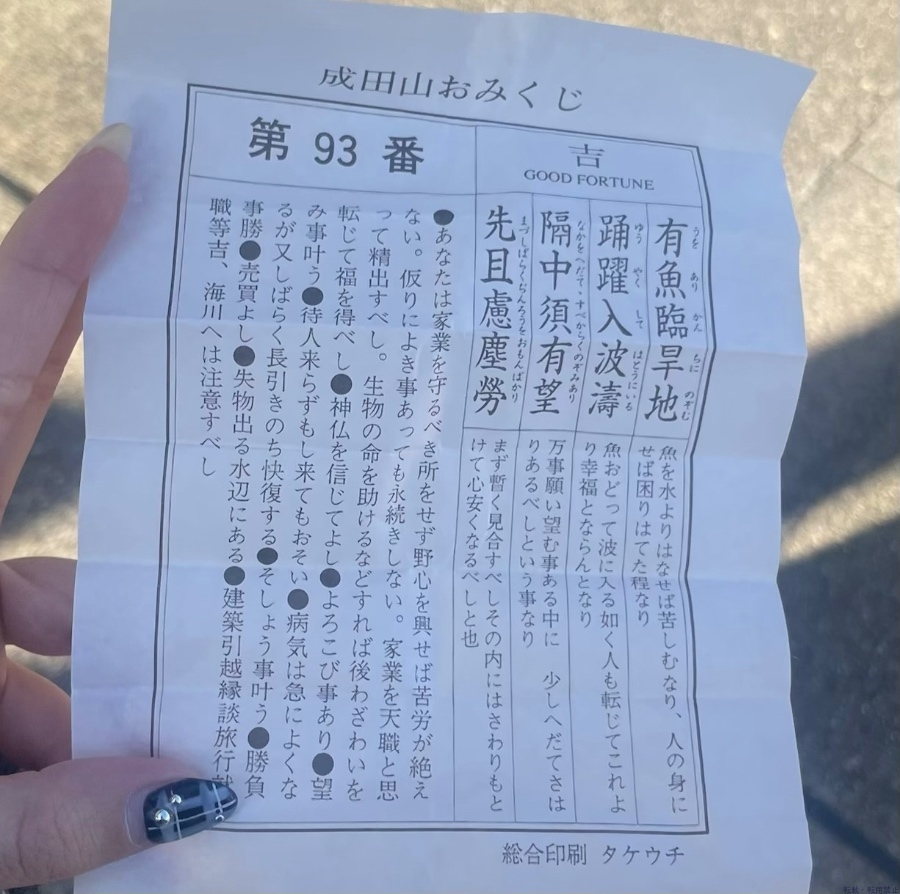 成田山おみくじ
第 93 番
吉
GOOD FORTUNE
有魚臨旱地
うを あり かん ちに のぞむ
魚を水よりはなせば苦しむなり、人の身に
せば困りはてた程なり
踊躍入波濤
ゆう やく して はとうにいる
魚おどって波に入る如く人も転じてこれよ
り幸福とならんとなり
隔中須有望
なかをへだて、すべからくのぞみあり
万事願い望む事ある中に 少しへだてさは
りあるべしという事なり
先且慮塵勞
まづしばらくぢんろうをおもんばかり
まず暫く見合すべしその内にはさわりもと
けて心安くなるべしと也
●あなたは家業を守るべき所をせず野心を興せば苦労が絶え
ない。仮りによき事あっても永続きしない。家業を天職と思
って精出すべし。生物の命を助けるなどすれば後わざわいを
転じて福を得べし●神仏を信じてよし●よろこび事あり●望
み事叶う●待人来らずもし来てもおそい●病気は急によくな
るが又しばらく長引きのち快復する●そしょう事叶う●勝負
事勝●売買よし●失物出る水辺にある●建築引越縁談旅行就
職等吉、海川へは注意すべし
総合印刷 タケウチ